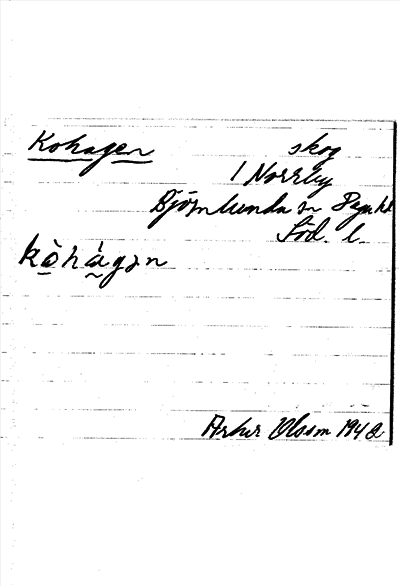 Kohagen skog
1 Norrby
Björnlunda sn Daga hd
Söd. l.
kò̠há̰gən
Artur Olsson 1942